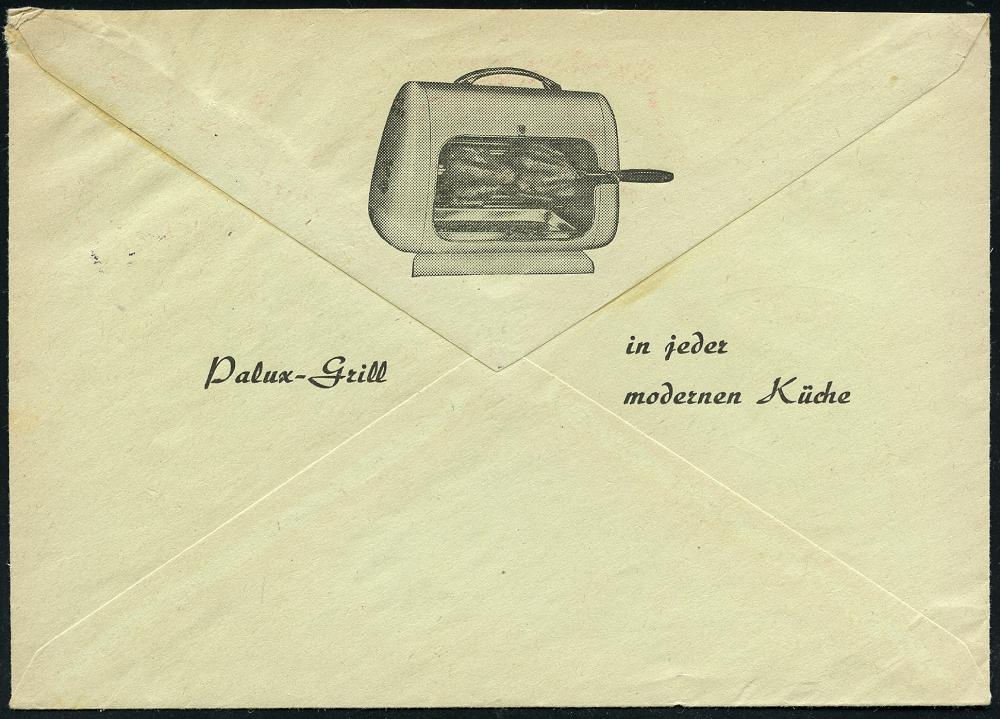 Palux-Grill
in jeder
modernen Küche